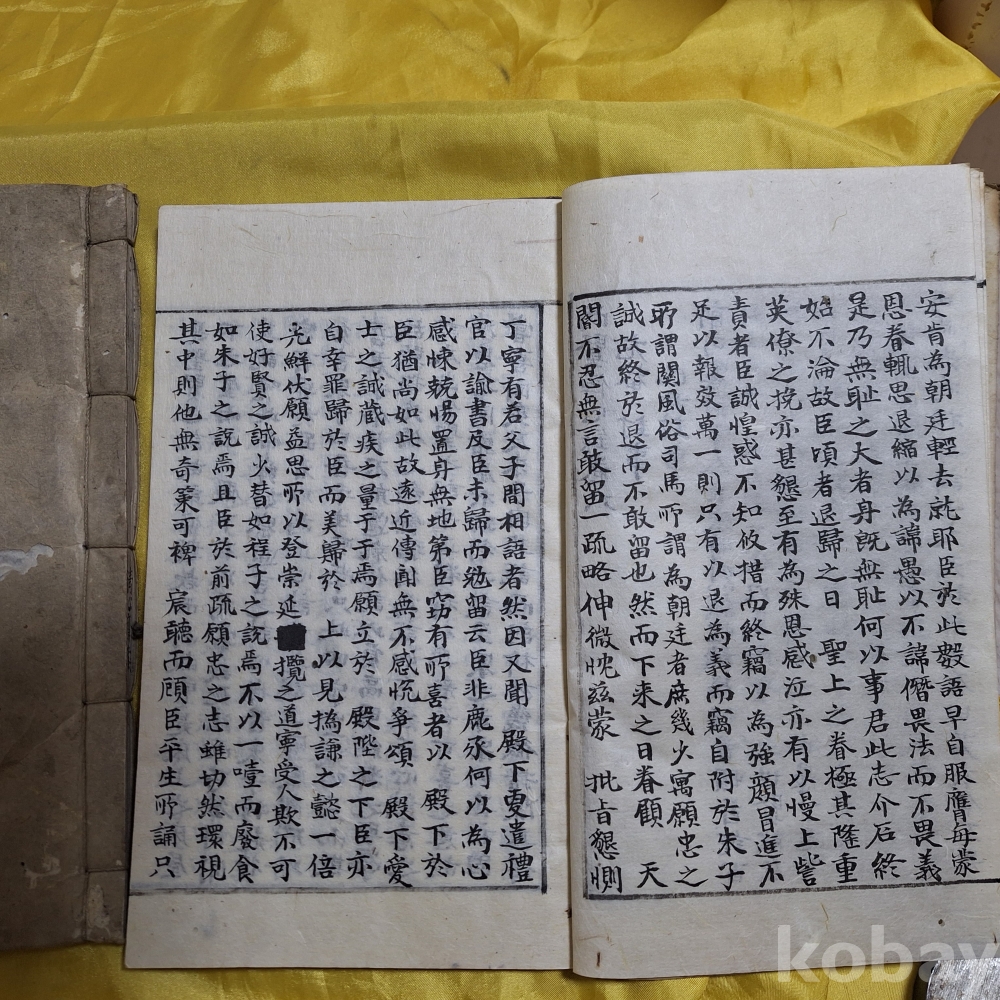 安肯為朝廷輕去就耶臣於此數語早自服膺每蒙
恩眷輒思退縮以為諱愚以不諱僭畏法而不畏義
是乃無耻之大者身旣無耻何以事君此志介石終
始不淪故臣頃者退歸之日 聖上之眷極其隆重
英僚之挽亦甚懇至有為殊恩感泣亦有以慢上訾
責者臣誠惶惑不知攸措而終竊以為強顔冒進不
足以報效萬一則只有以退為義而竊自附於朱子
所謂關風俗司馬所謂為朝廷者庶幾少寓願忠之
誠故終於退而不敢留也然而下来之日眷顧 天
閽不忍無言敢留一疏略伸微忱玆蒙 批旨懇惻
丁寧有若父子間相語者然因又聞 殿下更遣禮
官以諭書及臣未歸而勉留云臣非鹿豕何以為心
感悚兢惕置身無地第臣竊有所喜者以 殿下於
臣猶尚如此故遠近傳聞無不感悅爭頌 殿下愛
士之誠蔵疾之量于于焉願立於 殿陛之下臣亦
自幸罪歸於臣而美歸於 上以見撝謙之懿一倍
光鮮伏願益思所以登崇延攬之道寧受人欺不可
使好賢之誠少替如程子之說焉不以一噎而廢食
如朱子之說焉且臣於前疏願忠之志雖切然環視
其中則他無奇策可裨 宸聽而顧臣平生所誦只
kobay